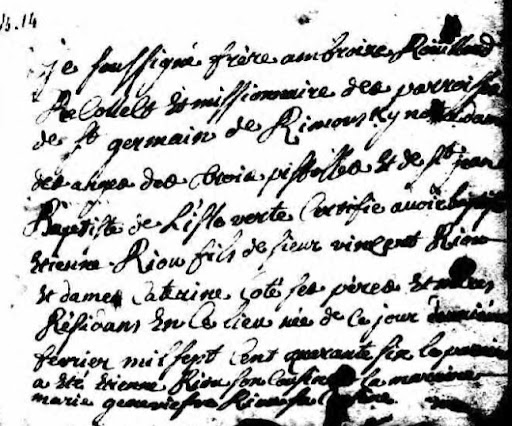 15.14
je soussigné frère ambroise Rouillard
Recollet Et missionnaire des parroisses
de St germain de Rimousky notre dame
des anges des trois pistolles Et de St jean
Baptiste de L'isle verte Certifie avoir baptisé
Etienne Riou fils de sieur vincent Riou
Et dame Catrine Coté ses pères Et mères
Résidans En Ce lieu née de Ce jour
fevrier mil sept Cent quarante six le parain
a été Etienne Riou son Cousin la maraine
marie geneviefve Riou sa Cousine